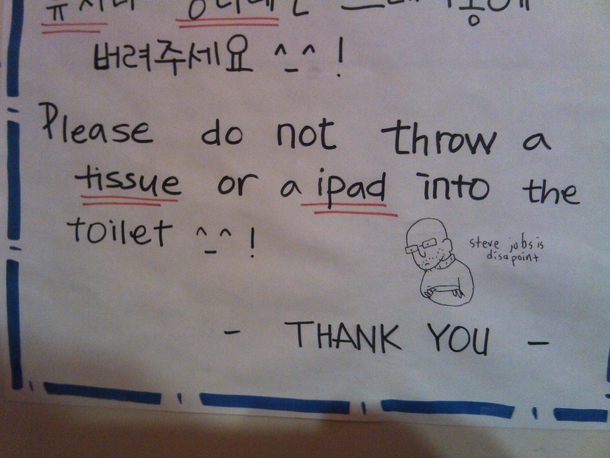 버려주세요 ^_^ !
Please do not throw a
tissue or a ipad into the
toilet ^_^ !
steve jobs is
disapoint
- THANK YOU -